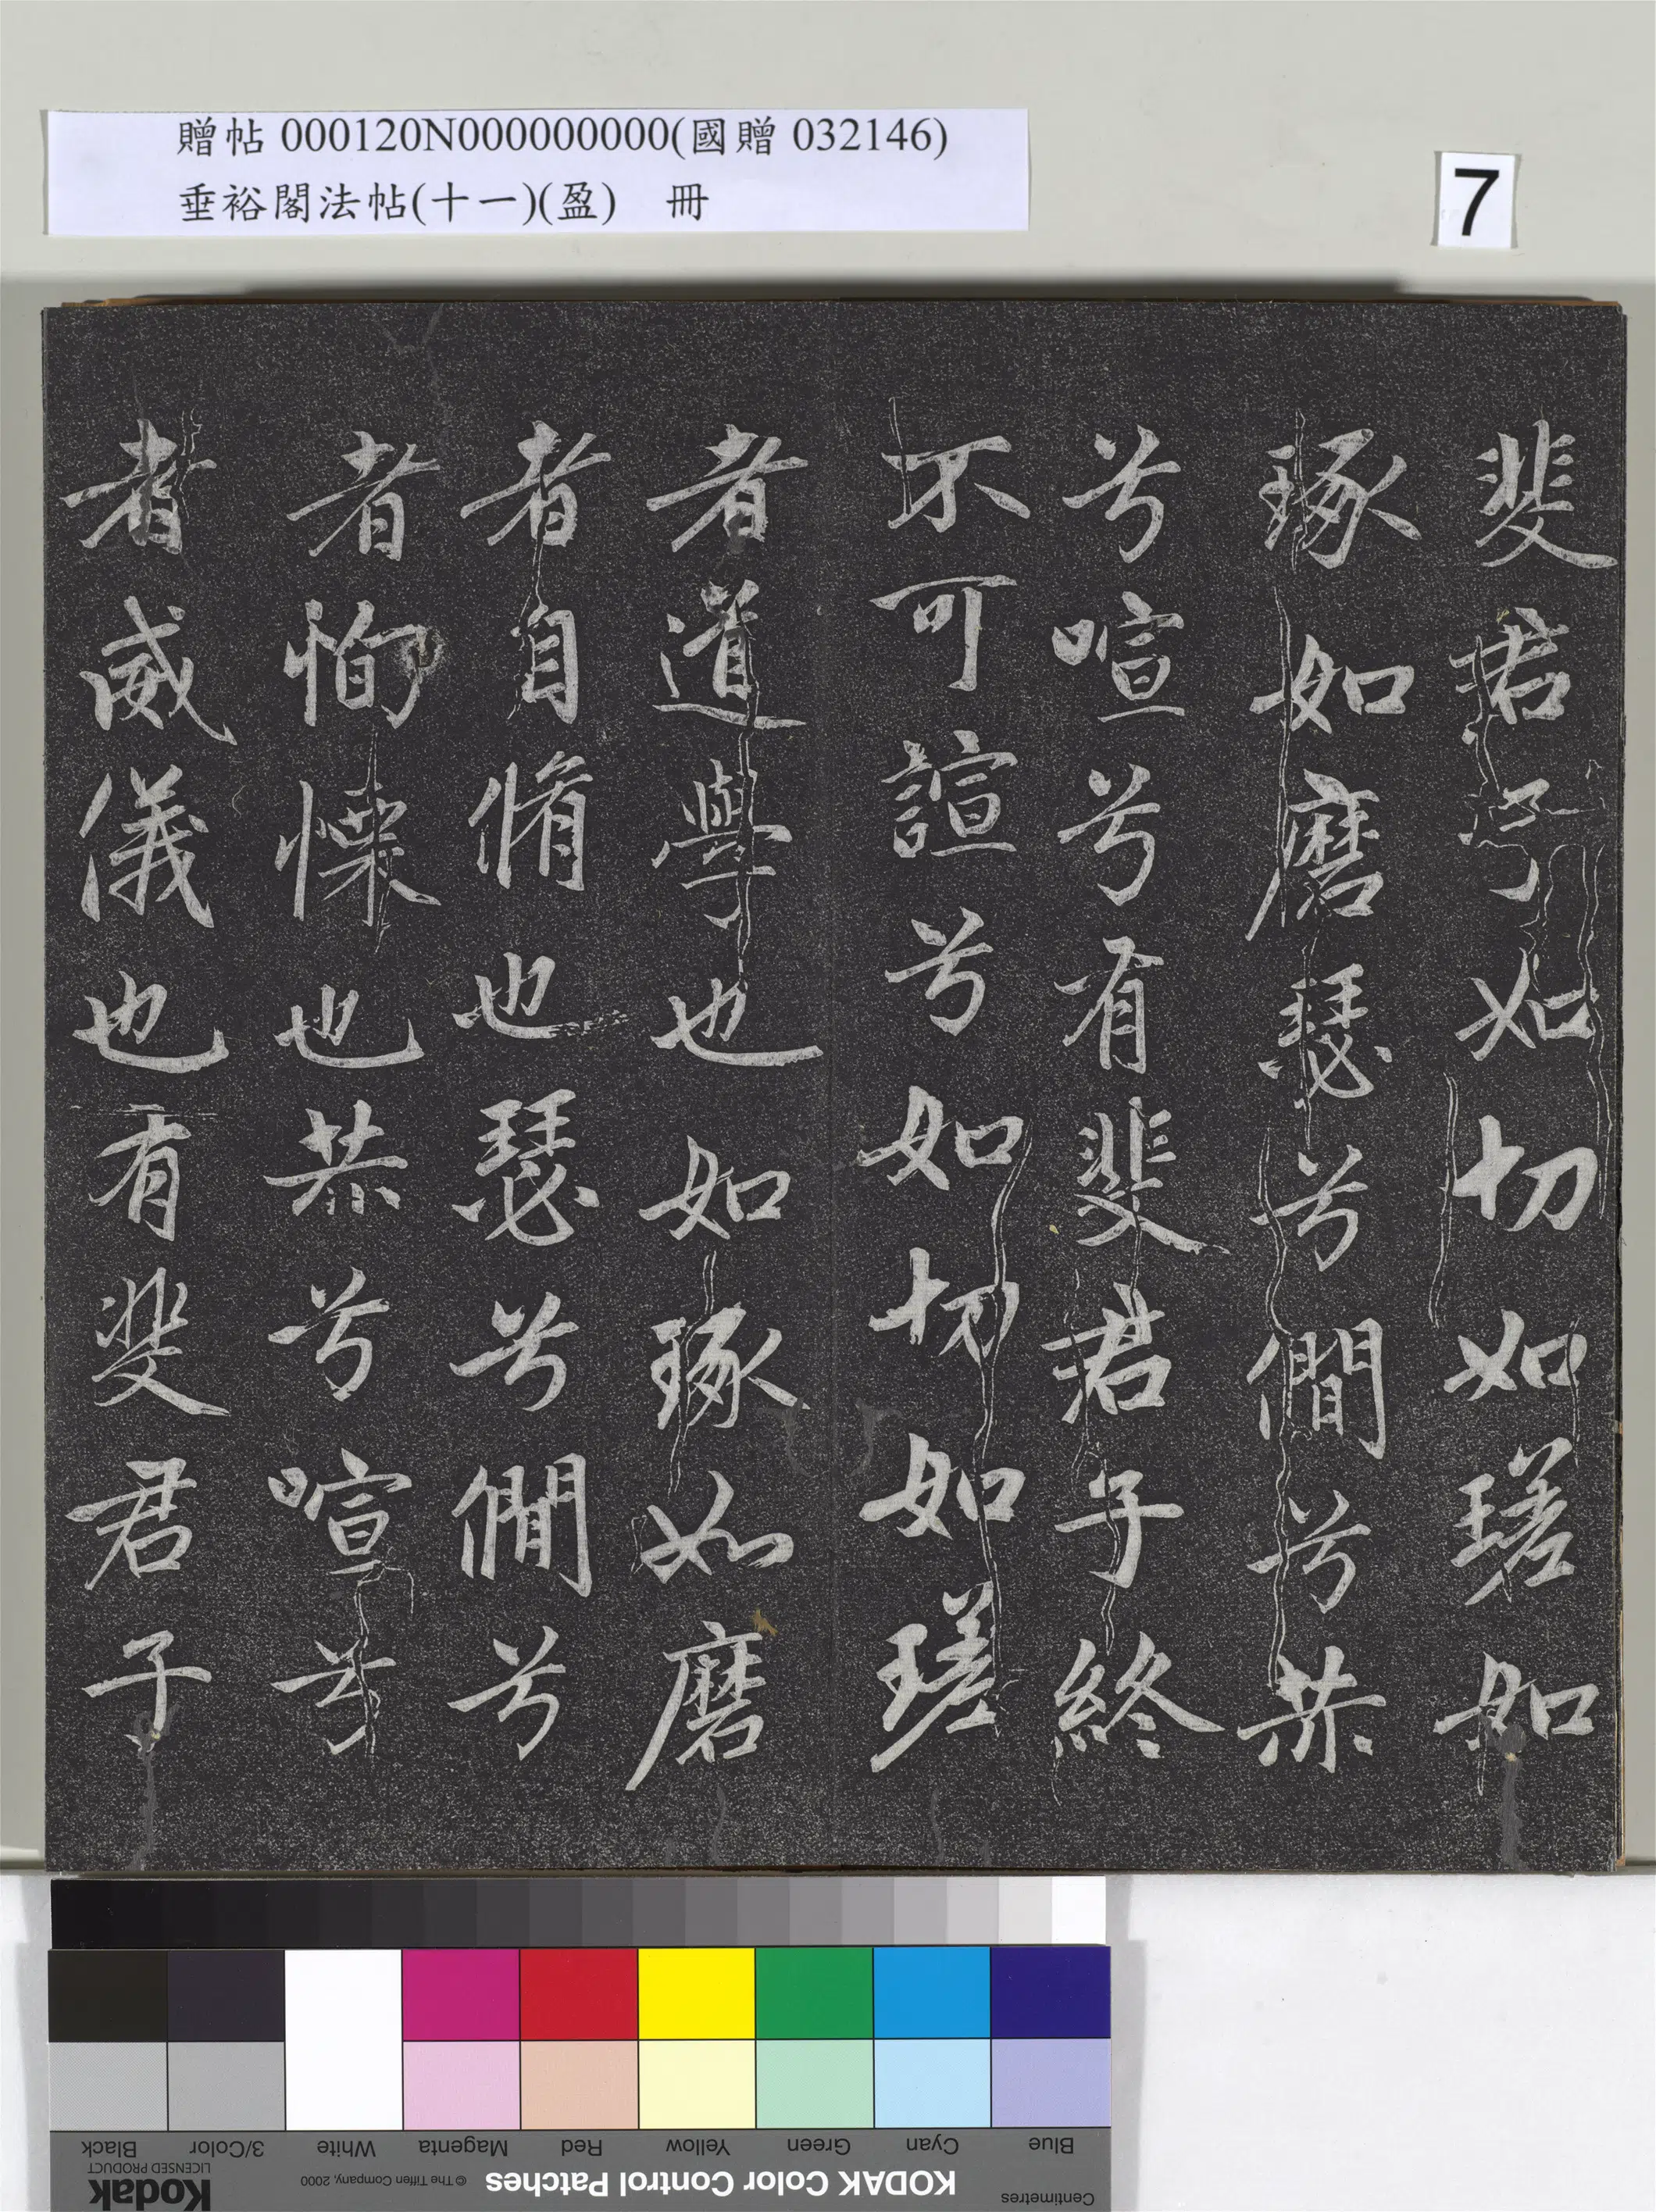 贈帖 000120N000000000(國贈 032146)
垂裕閣法帖(十一)(盈) 冊
7
斐君子如切如瑳如
琢如磨瑟兮僩兮恭
兮喧兮有斐君子終
不可諠兮如切如瑳
者道學也如琢如磨
者自脩也瑟兮僩兮
者恂慄也恭兮喧兮
者威儀也有斐君子
Black
3/Color
White
Magenta
Red
Yellow
Green
Cyan
Blue
LICENSED PRODUCT
Kodak
© The Tiffen Company, 2000
KODAK Color Control Patches
Centimetres